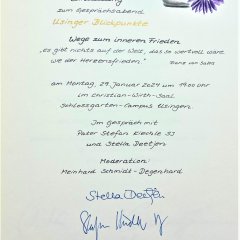 Einladung
zum Gesprächsabend
Usinger Blickpunkte
Wege zum inneren Frieden
„Es gibt nichts auf der Welt, das so wertvoll wäre
wie der Herzensfrieden." Franz von Sales
am Montag, 29. Januar 2024 um 19:00 Uhr
im Christian-Wirth-Saal
Schlossgarten-Campus Usingen.
Im Gespräch mit
Pater Stefan Kiechle SJ
und Stella Deetjen
Moderation:
Meinhard Schmidt-Degenhard
Stella Deetjen
Stefan Kiechle SJ